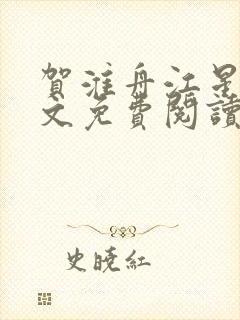 賀淮舟江星
文免費閱讀
史曉紅